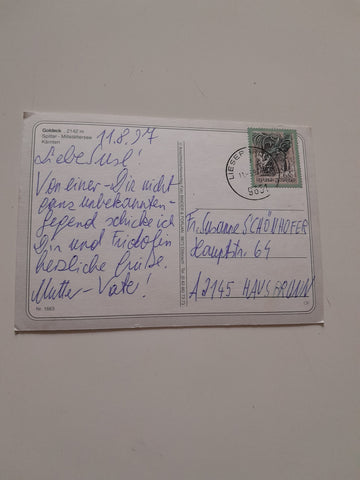 Goldeck 2142 m
Spittal - Millstättersee
Kärnten
11.8.97
Liebe Susi!
Von einer - Dir nicht
ganz unbekannten -
Gegend schicke ich
Dir und Fridolin
herzliche Grüße.
Mutter - Vater!
Nr. 1663
LIESER
9851
Fr. Susanne SCHÖNHOFER
Hauptstr. 64
A 2145 HAUSBRUNN